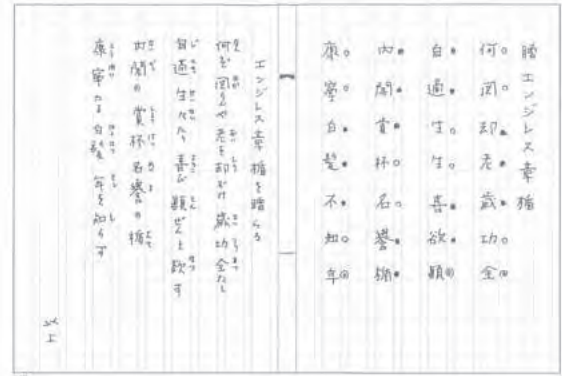 贈エンジレス章楯
何図却老歳功全
自適生生喜欲顛
内閣賞杯名誉楯
康寧白髪不知年
エンジレス章楯を贈らる
何を図るや老を却け歳功全たし
自適生々たり喜び顛ぜんと欲す
内閣の賞杯名誉の楯
康寧なる白髪年を知らず
以上